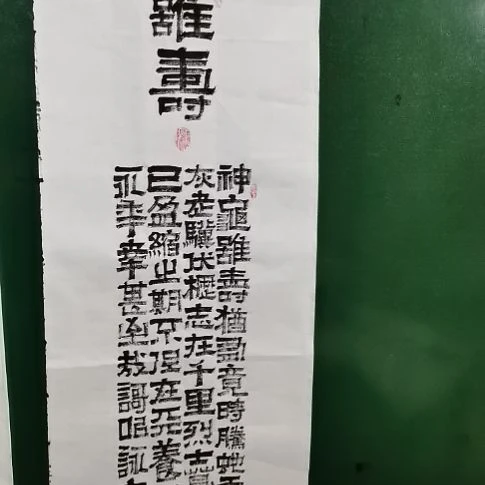 雖壽
神龜雖壽猶有竟時騰虵
灰老驥伏櫪志在千里烈士暮
已盈縮之期不但在天養
永年幸甚至哉謌以詠